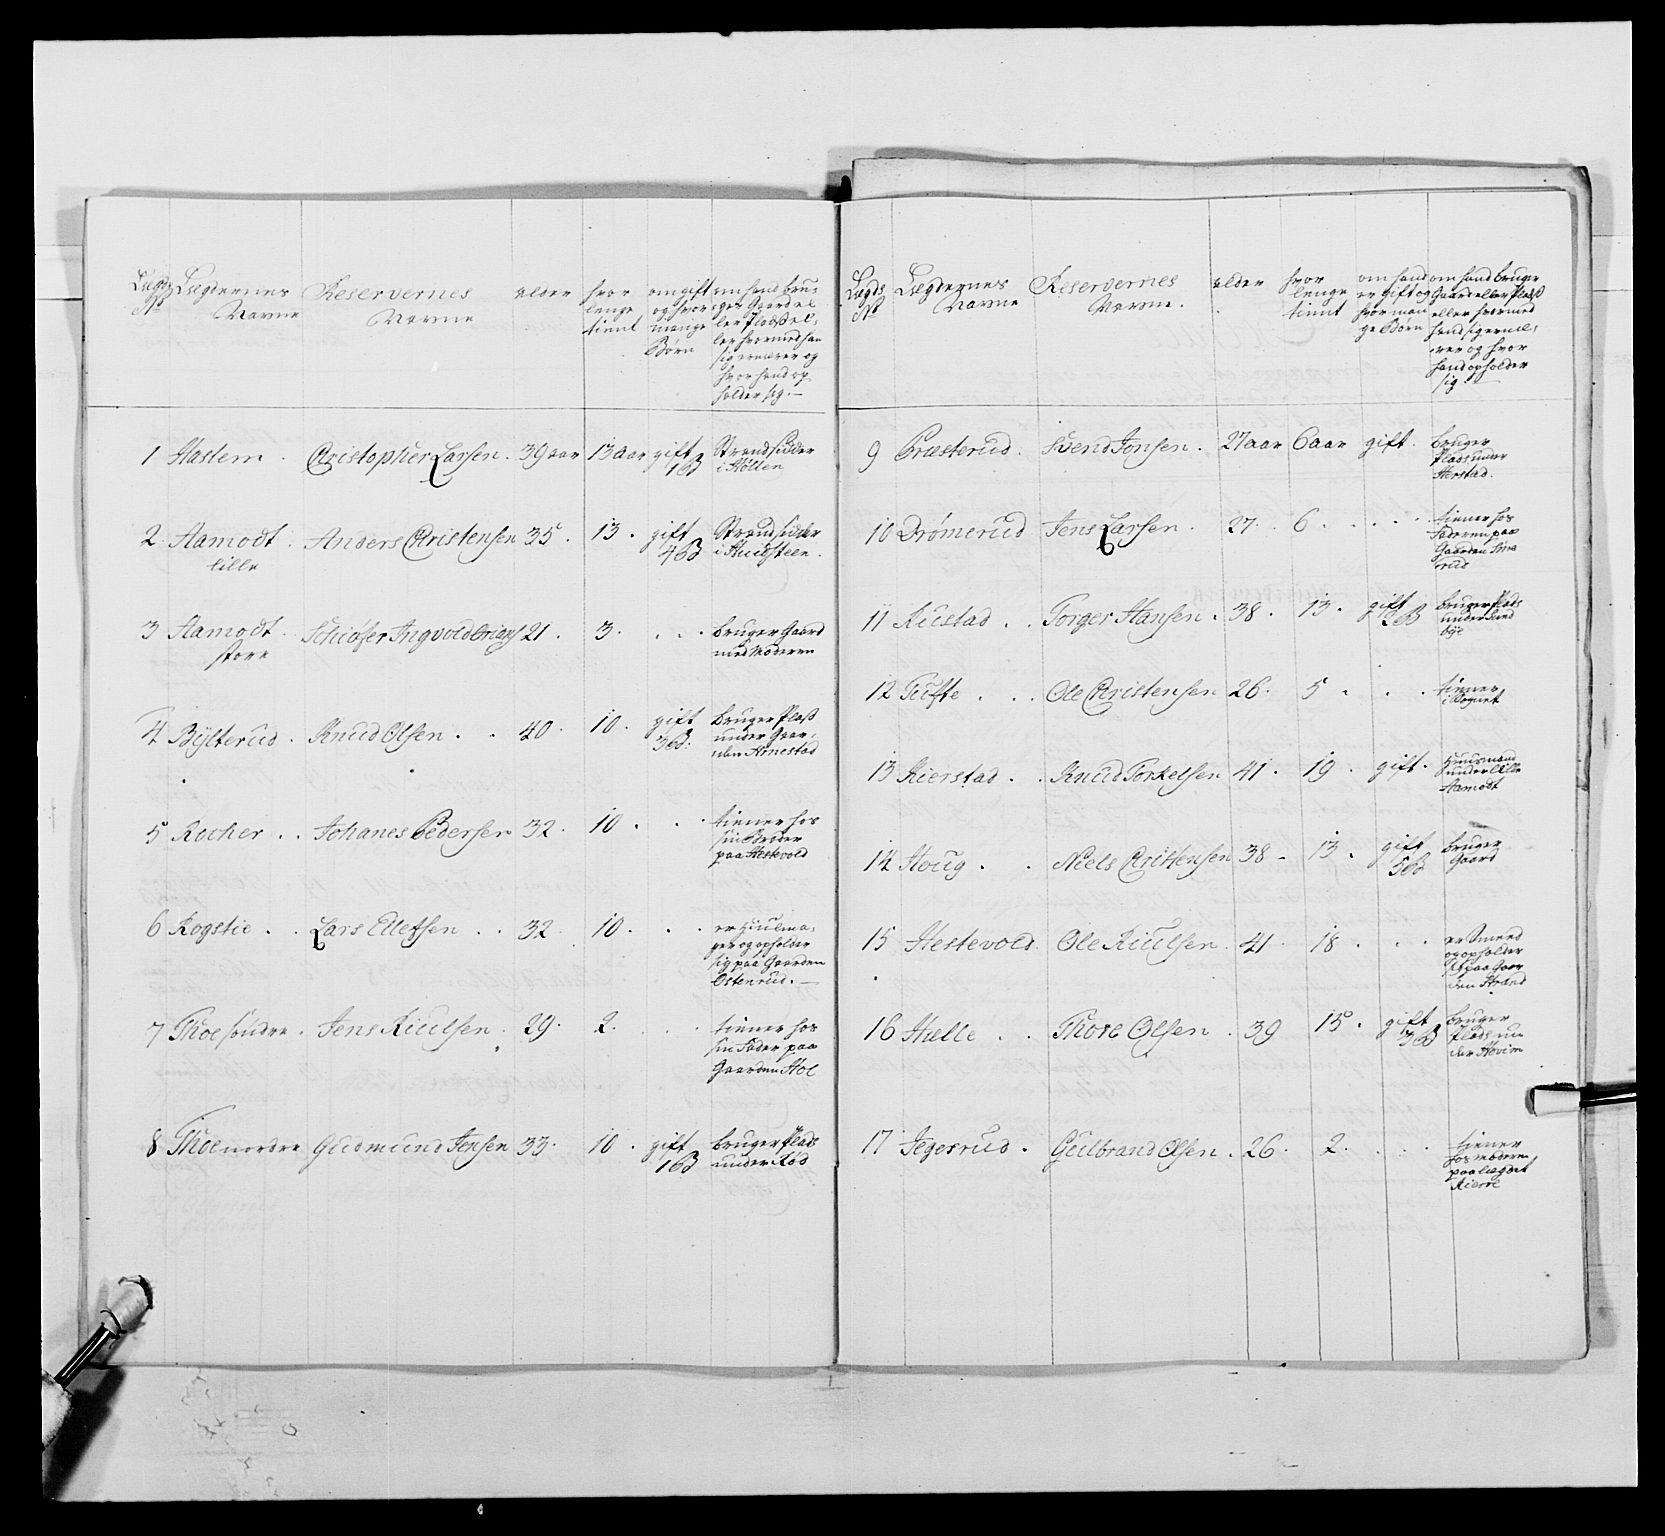 Lægds No Lægdernes Navne Reservernes Navne alder hvor lenge tient om gift og hvor mange Børn om hand bruger Gaard eller Pladß eller hvormed han sig ernærer og hvor hand opholder sig.
1 Haslem. Christopher Larsen. 39 aar 13 aar gift 1 B Strandsidder i Holten
2 Aamodt lille Anders Christensen 35. 13. gift 4 B Strandsidder
3 Aamodt store Ingvold 21. 3. . . . bruger Gaard med Moderen
4 Bÿlterud. Knud Olsen. . 40. 10. gift 3 B: bruger Plaß under Gaarden Arnestad
5 Rocher. . Johanes Pedersen 32. 10. . . tiener hos sin Broder paa Hestevold
6 Rogstie. . Lars Ellefsen. . 32. 10. . . er Hiulmager og opholder sig paa Gaarden Ostenrud.
7 Thoe søndre. Jens Kiulsen. 29. 2. . . tiener hos sin Fader paa Gaarden Hoe
8 Thoe nordre Gudmund Jensen 33. 10. gift 1 B bruger Plads under Rød
Lægds No Lægdernes Navne Reservernes Navne. alder hvor lenge tient om hand er gift og hvor mange Børn om hand bruger Gaard eller Pladß eller hvormed hand sig ernærer og hvor hand opholder sig.
9 Præsterud. Svend Jonsen. 27 aar 6 aar gift. bruger Plads under Herstad.
10 Drømerud Jens Larsen. 27. 6. . . . tiener hos Faderen paa Gaarden
11 Rustad. . Torger Hansen. 38. 13. gift 2 B bruger Plads under
12 Tufte. . . Ole Christensen 26. 5. . . tiener i Sognet
13 Kierstad. . Knud Torkelsen 41. 19. gift. Huusmand under lille Aamodt
14 Houg. . Niels Christensen 38. 13. gift 5 B bruger Gaard
15 Hestevold. Ole Kiulsen. 41. 18. . . er Smed og opholder sig paa Gaarden Strand
16 Halle. . Thore Olsen. 39 15. gift 3 B bruger Plads under Hovim
17 Jegersrud. Gulbrand Olsen. 26. 2. . . . tiener hos Moderen paa lægdet Kierre